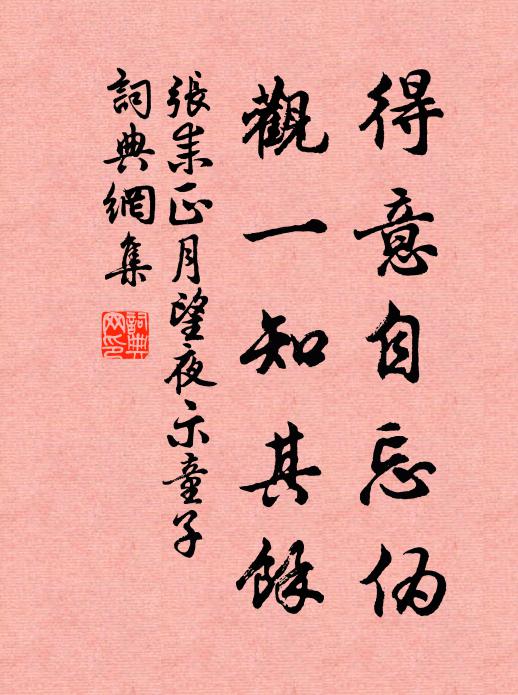 得意自忘偽
觀一知其餘
張耒正月望夜示童子
詞典網集
詞典網印